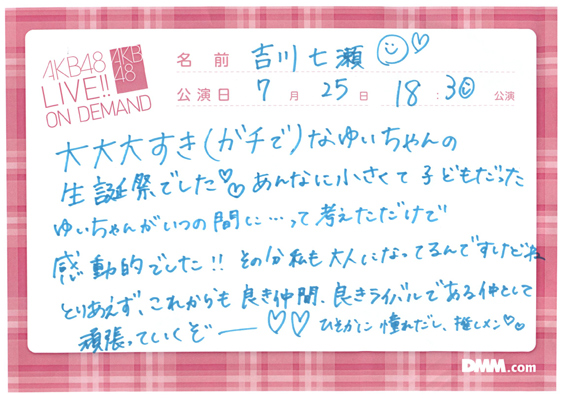 AKB48
LIVE!!
ON DEMAND
AKB
48
名前 吉川七瀬
公演日 7月25日 18:30公演
大大大すき(ガチで)なゆいちゃんの
生誕祭でした♡♡あんなに小さくて子どもだった
ゆいちゃんがいつの間に…って考えただけで
感動的でした!! その分私も大人になってるんですけどね
とりあえず、これからも良き仲間、良きライバルである仲として
頑張っていくぞー♡♡ ひそかに憧れだし、推しメン♡♡
DMM.com